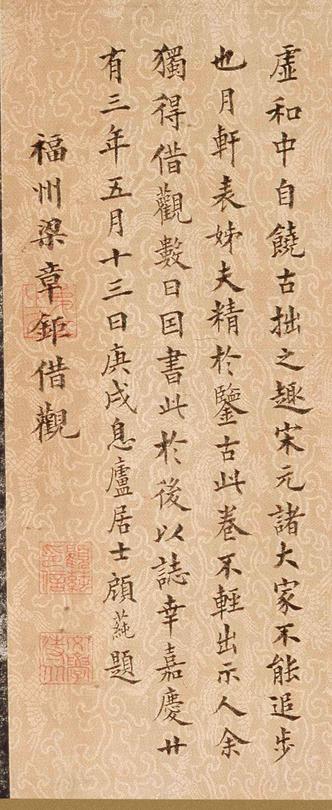 虛和中自饒古拙之趣宋元諸大家不能追步
也月軒表姊夫精於鑒古此卷不輕出示人余
獨得借觀數日因書此於後以誌幸嘉慶廿
有三年五月十三日庚戌息廬居士顧蒓題
福州梁章鉅借觀